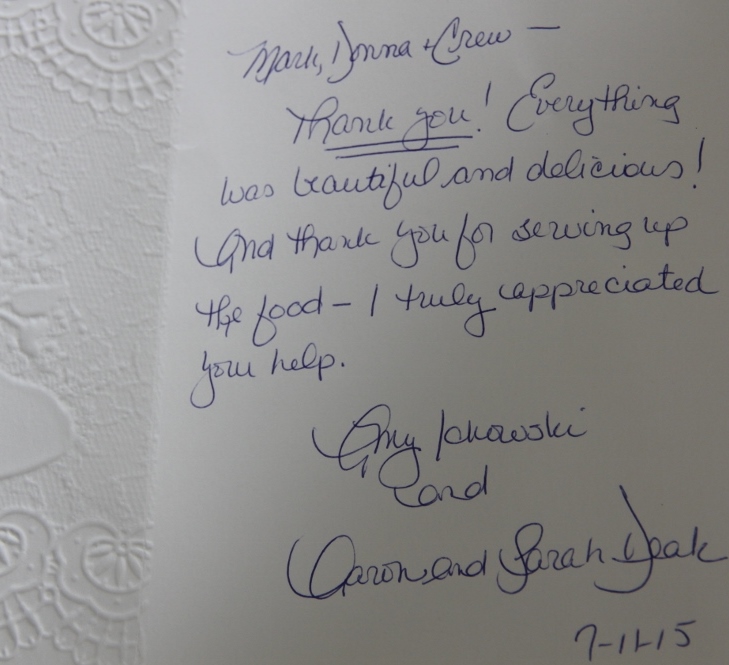 Mark, Donna + Crew —
Thank you! Everything
was beautiful and delicious!
And thank you for serving up
the food – I truly appreciated
your help.
Amy Ickowski
and
Aaron and Sarah Deak
7-11-15